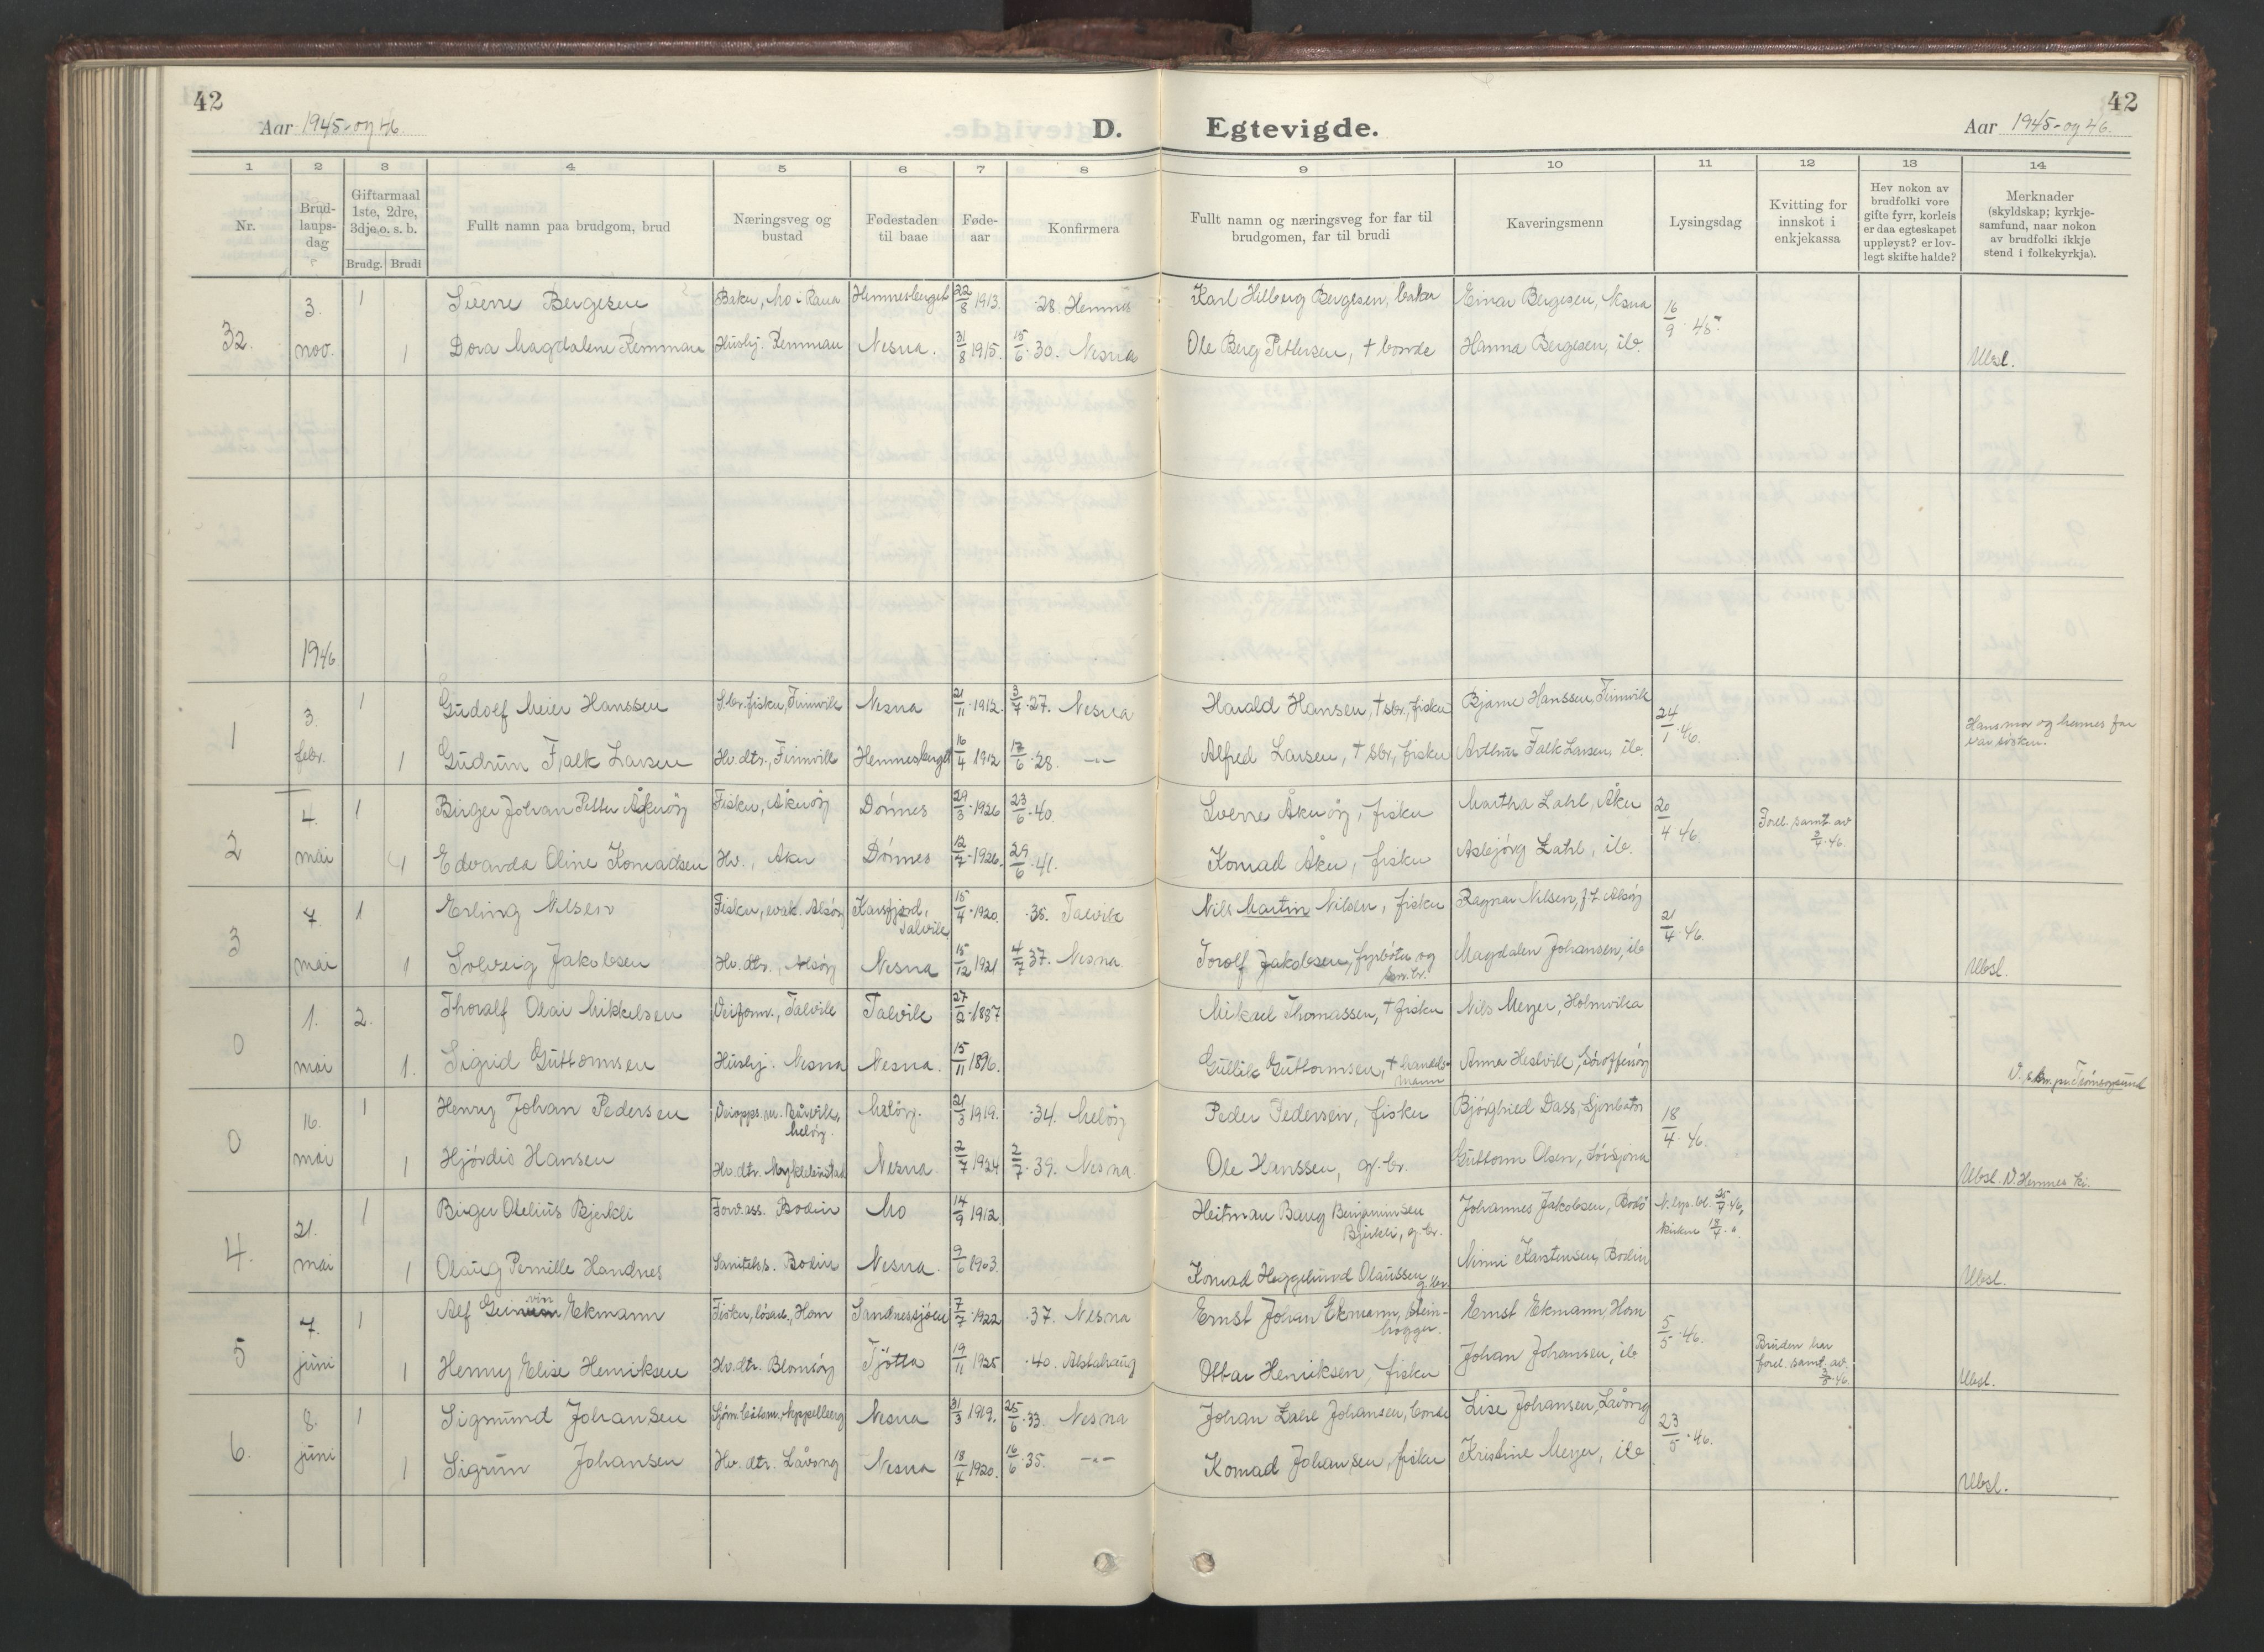 42
Aar 1945- og 46.
D. Egtevigde.
42
Aar 1945- og 46.
1 2 3 4 5 6 7 8 9 10 11 12 13 14
Nr.
Brud-
laups-
dag
Giftarmaal
1ste, 2dre,
3dje o. s. b.
Brudg. Brudi
Fullt namn paa brudgom, brud
Næringsveg og
bustad
Fødestaden
til baae
Føde-
aar
Konfirmera
Fullt namn og næringsveg for far til
brudgomen, far til brudi
Kaveringsmenn
Lysingsdag
Kvitting for
innskot i
enkjekassa
Hev nokon av
brudfolki vore
gifte fyrr, korleis
er daa egteskapet
uppløyst? er lov-
legt skifte halde?
Merknader
(skyldskap; kyrkje-
samfund, naar nokon
av brudfolki ikkje
stend i folkekyrkja).
32.
3. 1 Sverre Bergesen Baker, Mo i Rana Hemnesberget 22/8 1913. 28. Hemnes Karl Hilberg Bergesen, baker Einar Bergesen, Nesna 16/9 45.
nov. 1 Dora Magdalene Remman Hushj. Remman Nesna. 31/8 1915. 15/6 30. Nesna Ole Berg Pettersen, † bonde Hanna Bergesen, ib. Ubsl.
1946
1
3. 1 Gudolf Meier Hanssen S.br. fisker, Finnvik Nesna 21/11 1912. 3/7 27. Nesna Harald Hansen, † sbr., fisker Bjarne Hanssen, Finnvik 24/1 46. Hans mor og hennes far
var søsken.
febr. 1 Gudrun Falk Larsen Hv. dtr., Finnvik Hemnesberget 16/4 1912 17/6 28. -"- Alfred Larsen, † sbr., fisker Arthur Falk Larsen, ib.
2
4. 1 Birger Johan Petter Åkerøy Fisker, Åkerøy Dønnes 29/3 1926 23/6 40. Sverre Åkerøy, fisker Martha Zahl, Åker 20/4 46. Forel. samt. av
3/4 46.
mai 1 Edvarda Oline Konradsen Hv., Åker Dønnes 12/7 1926. 29/6 41. Konrad Åker, fisker Asbjørg Zahl, ib.
3
7. 1 Erling Nilsen Fisker, evak. Alsøy Talvik 15/4 1920. 35. Talvik Nils Martin Nilsen, fisker Ragnar Nilsen, Alsøy 21/4 46.
mai 1 Solveig Jakobsen Hv. dtr., Alsøy Nesna 15/12 1921 4/7 37. Nesna Torolf Jakobsen, fyrbøter og Magdalen Johansen, ib Ubsl.
0
1. 2. Thoralf Olai Mikkelsen Veiform., Talvik Talvik 27/2 1887 Mikael Thomassen, † fisker Nils Meyer, Holmvika
mai 1. Sigrid Guttormsen Hushj. Nesna Nesna. 15/11 1896. Gullik Guttormsen, † handels-
mann Anna Hestvik,
0
16. 1 Henry Johan Pedersen Meløy. 21/3 1919. 34. Meløy Peder Pedersen, fisker Bjørghild Dass, 18/4 46.
mai 1 Hjørdis Hansen Hv. dtr. Myklebustad Nesna 2/7 1924 2/7 39. Nesna Ole Hanssen, g.br. Guttorm Olsen, Sørsjona Ubsl. V. Hemnes ki.
4.
21. 1 Birger Otelius Bjerkli Forv.ass. Bodin Mo 14/9 1912 Heitman Baug Benjaminsen
Bjerkli, g.br. Johannes Jakobsen, Bodø
mai 1 Olaug Pernille Handnes Bodin Nesna. 9/6 1903. Konrad Heggelund Olaussen g.br. Ninni Karstensen, Bodin Ubsl.
5
7. 1 Alf Ekmann Fisker, løsarb., Horn Sandnessjøen 7/7 1922 37. Nesna Ernst Johan Ekmann, stein-
hogger. Ernst Ekmann, Horn 5/5 46.
juni 1 Henny Elise Henriksen Hv. dtr. Blomsøy Tjøtta 19/11 1925 40. Alstahaug Ottar Henriksen, fisker Johan Johansen, ib Bruden har
forel. samt. av. Ubsl.
6.
8. 1 Sigmund Johansen Nesna 31/3 1919. 25/6 33 Nesna Johan Zahl Johansen, bonde Lise Johansen, Låvong 23/5 46.
juni 1 Sigrun Johansen Hv. dtr. Låvong Nesna 18/4 1920. 16/6 35. -"- Konrad Johansen, fisker Kristine Meyer, ib Ubsl.